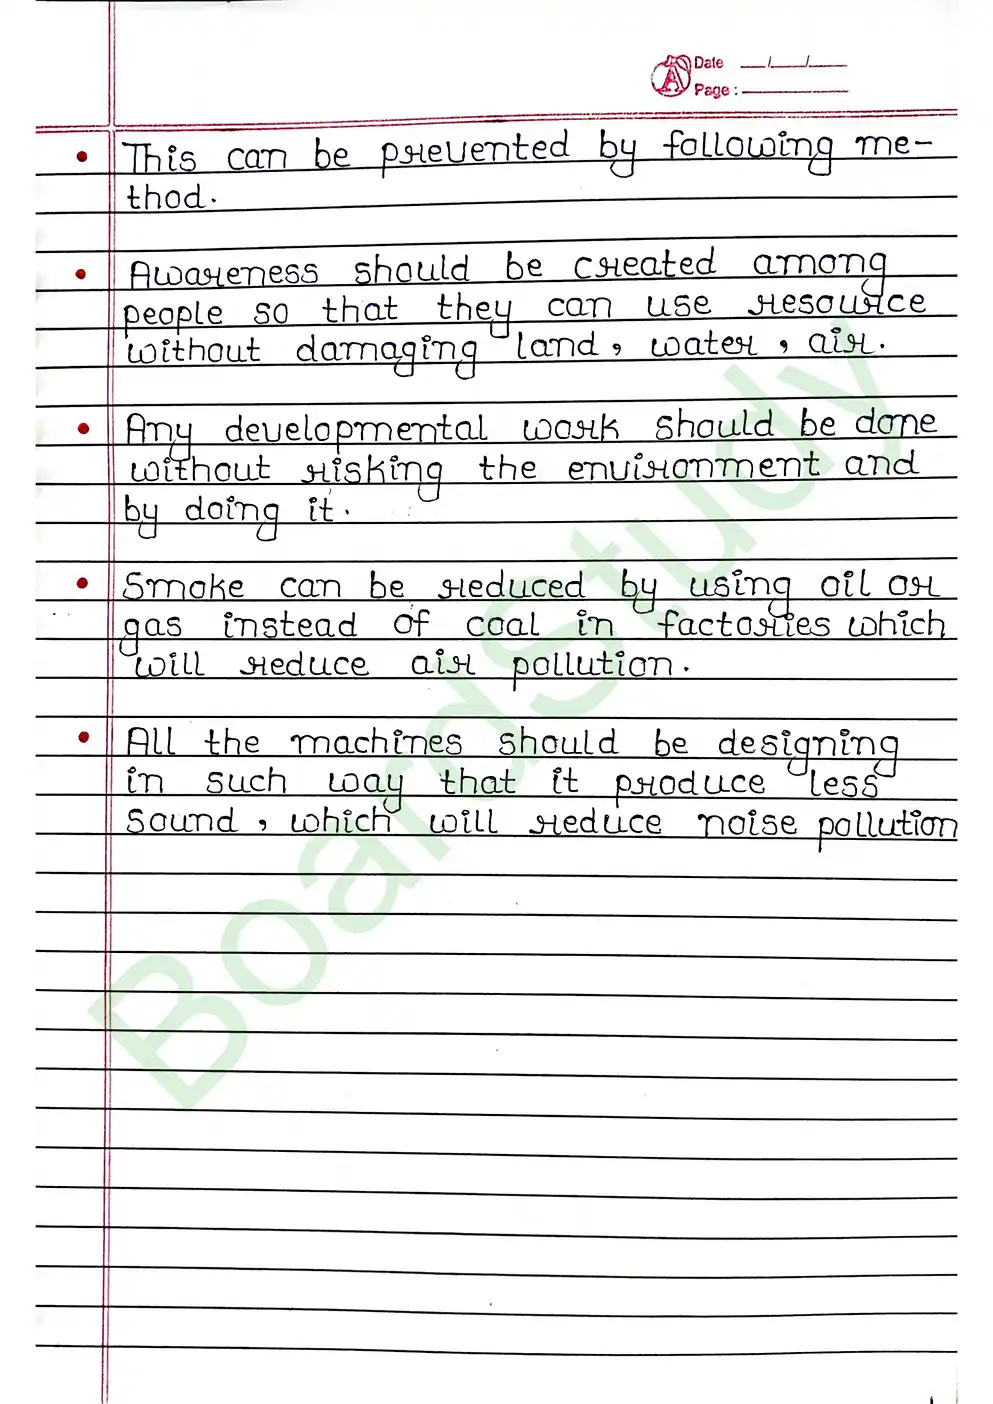 Date __/__/__
Page : ______
• This can be prevented by following me-
thod.
• Awareness should be created among
people so that they can use resource
without damaging land, water, air.
• Any developmental work should be done
without risking the environment and
by doing it.
• Smoke can be reduced by using oil or
gas instead of coal in factories which
will reduce air pollution.
• All the machines should be designing
in such way that it produce less
sound, which will reduce noise pollution
BoardStudy